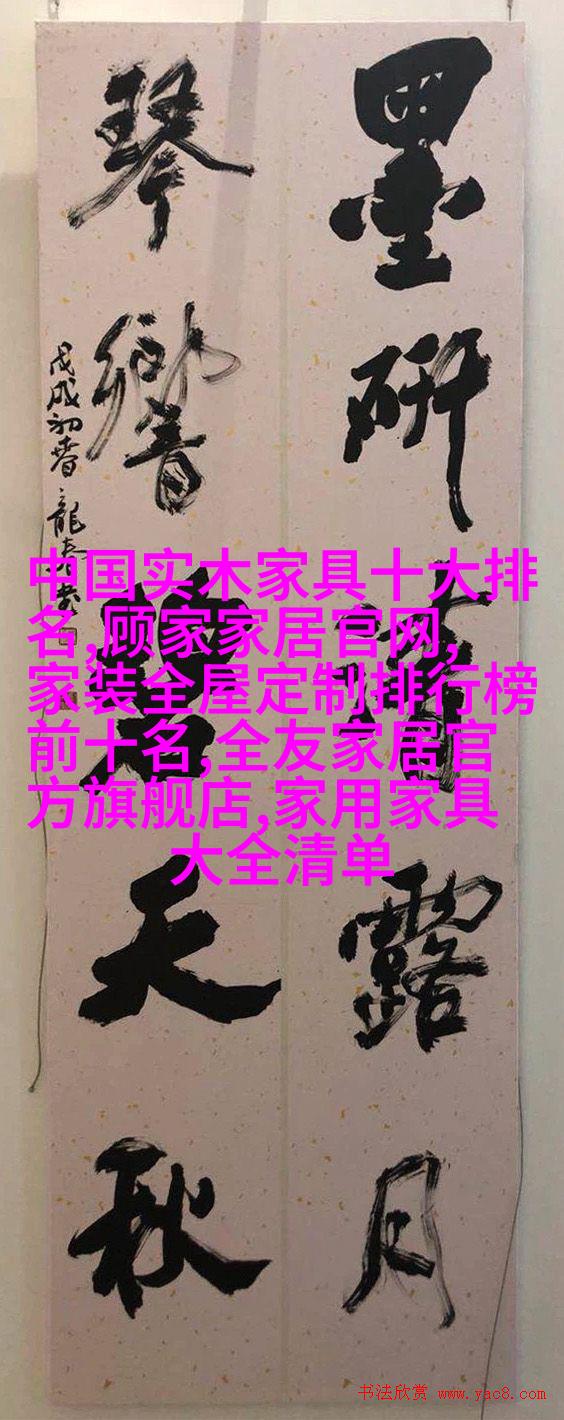 墨研清露月
琴響碧天秋
戊戌初春龍
中国实木家具十大排
名,顾家家居官网,
家装全屋定制排行榜
前十名,全友家居官
方旗舰店,家用家具
大全清单
书法欣赏 www.yac8.com